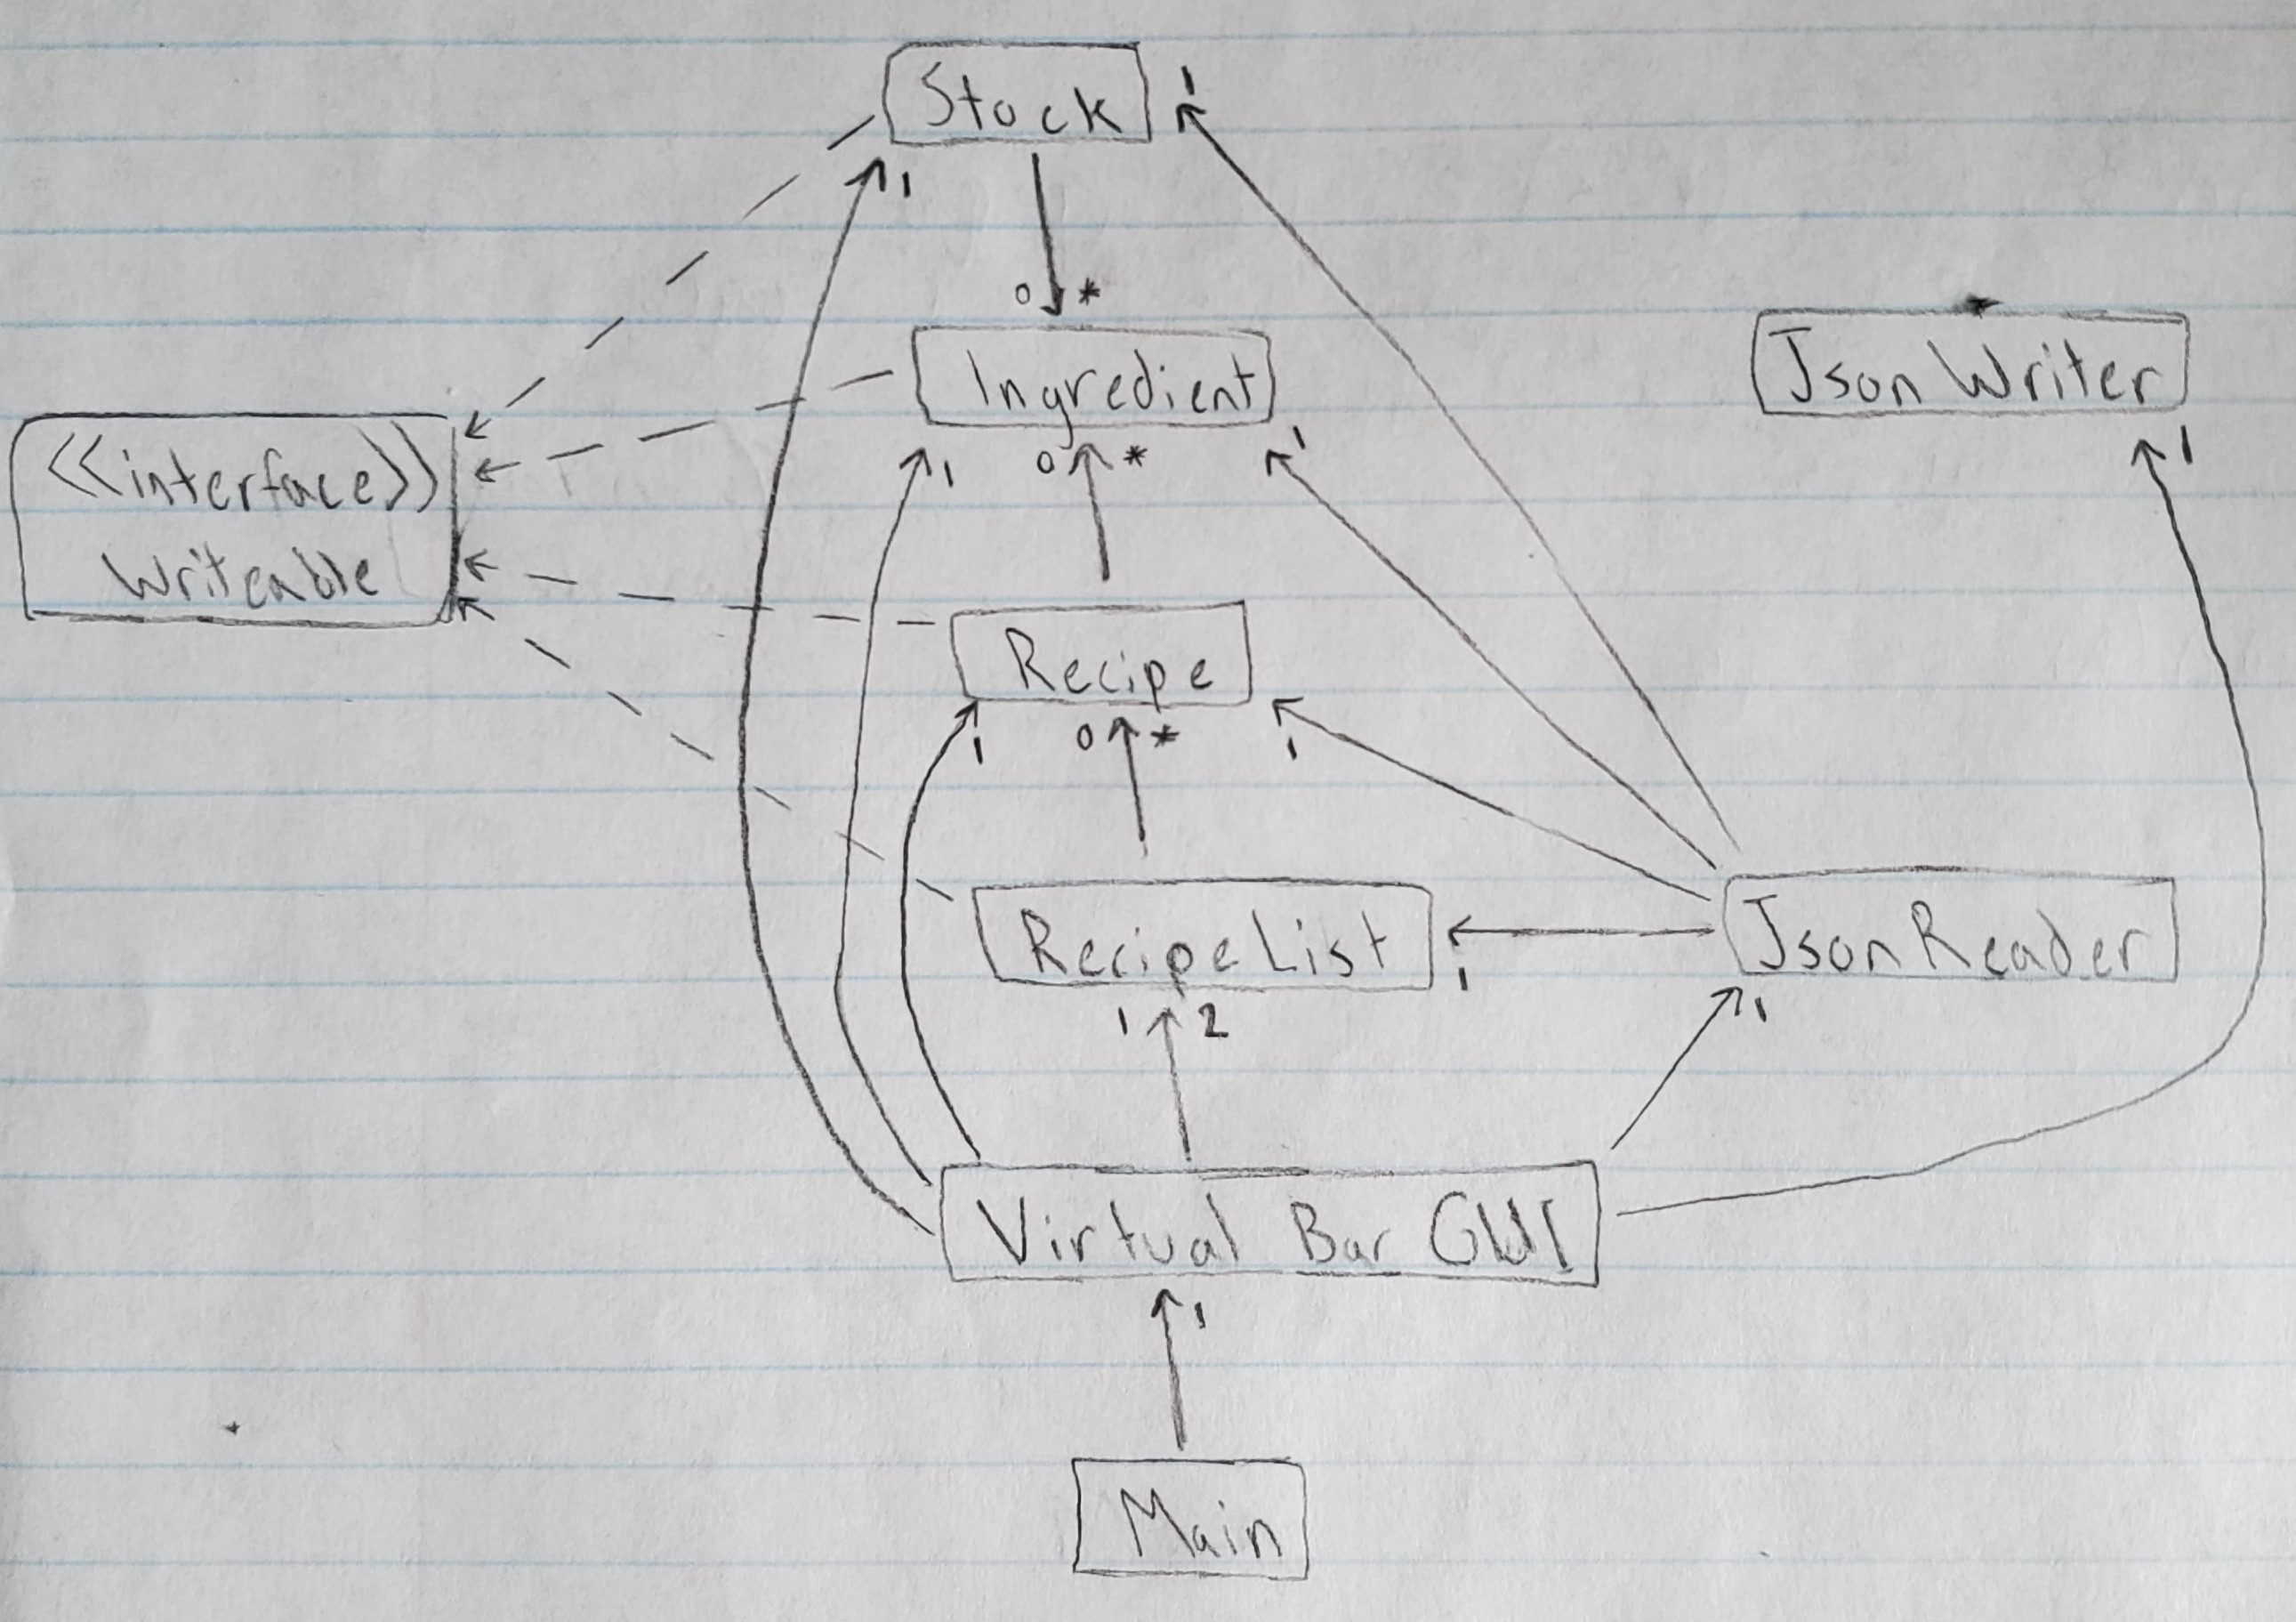 Stock
1
1
0 *
Ingredient
Json Writer
1
0 *
1
1
<<interface>>
Writeable
Recipe
1
0 *
1
RecipeList
JsonReader
1
1 2
1
Virtual Bar GUI
1
Main